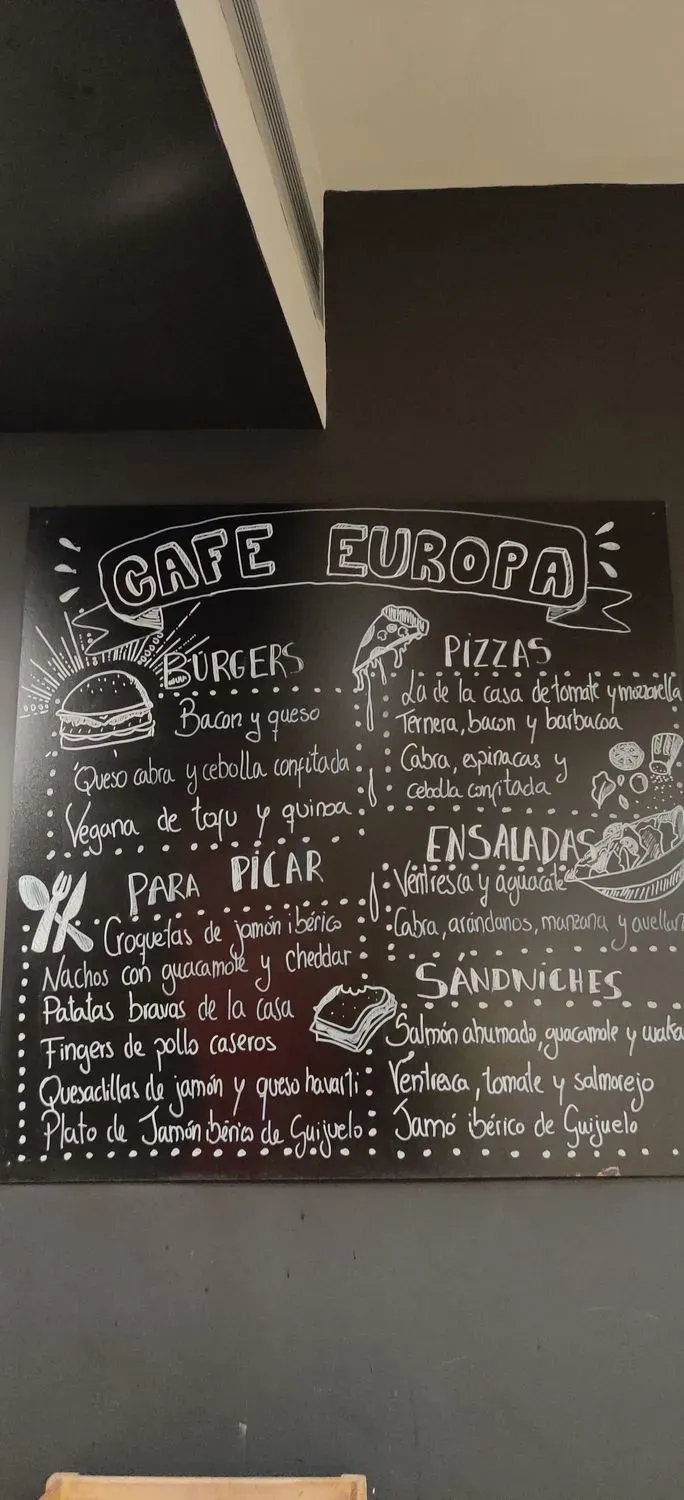 CAFE EUROPA
BURGERS
Bacon y queso
Queso cabra y cebolla confitada
Vegana de tofu y quinoa
PARA PICAR
Croquetas de jamón ibérico
Nachos con guacamole y cheddar
Patatas bravas de la casa
Fingers de pollo caseros
Quesadillas de jamón y queso havarti
Plato de Jamón ibérico de Guijuelo
PIZZAS
La de la casa de tomate y mozzarella
Ternera, bacon y barbacoa
Cabra, espinacas y
cebolla confitada
ENSALADAS
Ventresca y aguacate
Cabra, arándanos, manzana y avellan
SÁNDWICHES
Salmón ahumado, guacamole y waka
Ventresca, tomate y salmorejo
Jamó ibérico de Guijuelo